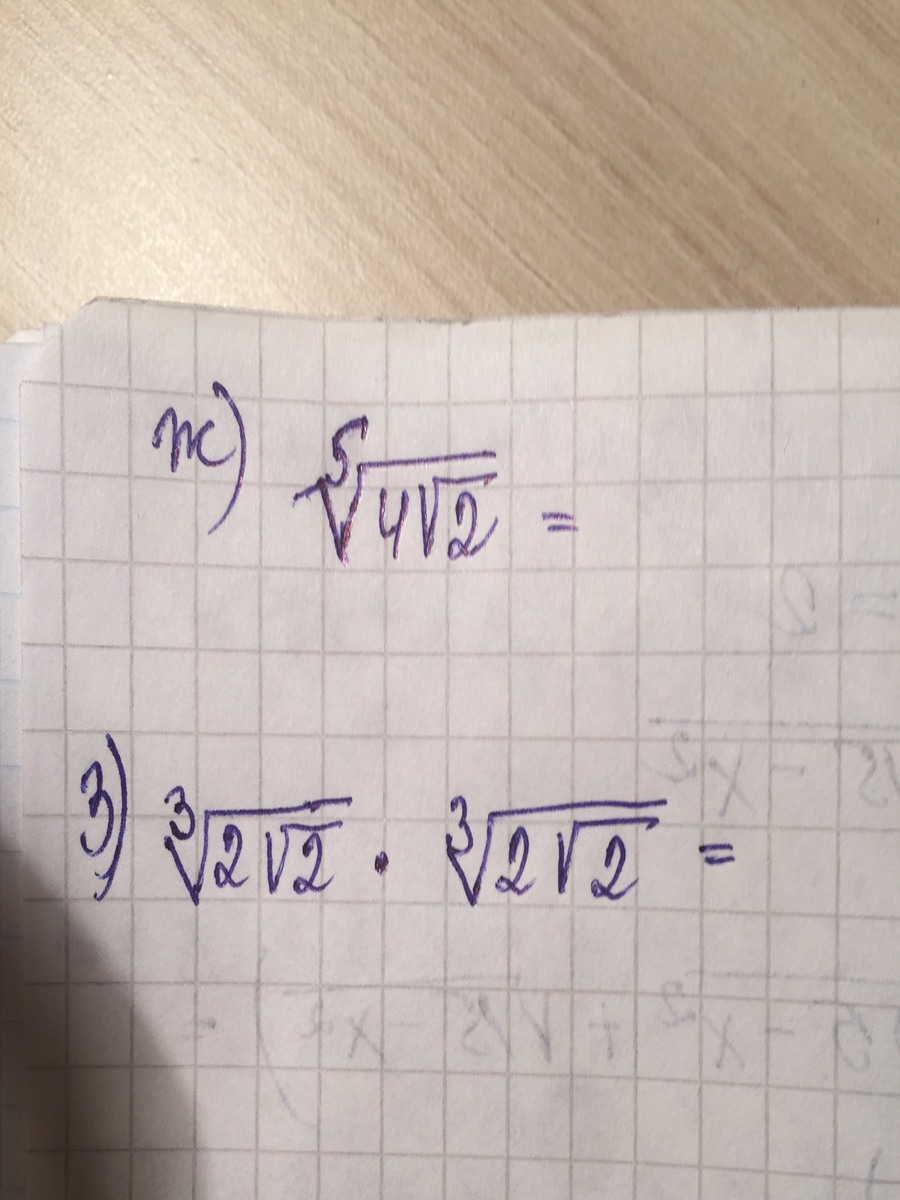 ж) ⁵√(4√2) =
з) ³√(2√2) · ³√(2√2) =